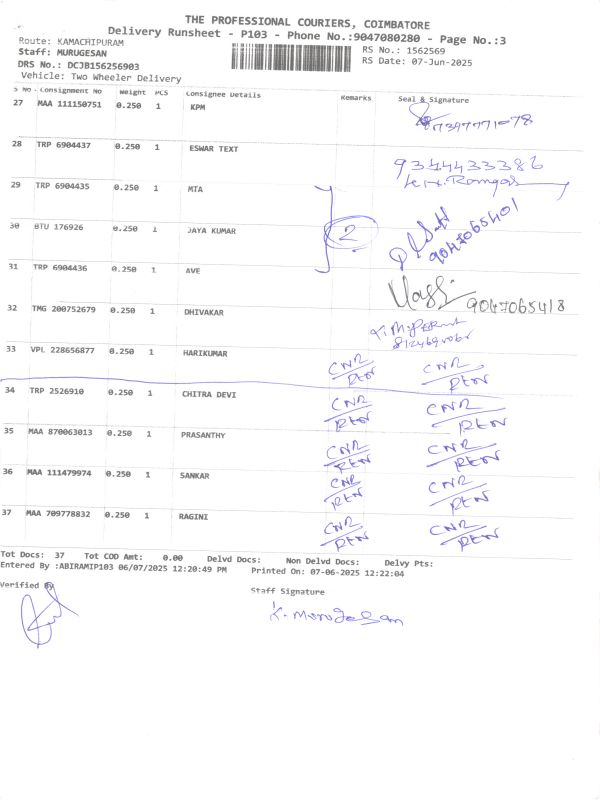 THE PROFESSIONAL COURIERS, COIMBATORE
Delivery Runsheet - P103 - Phone No.:9047080280 - Page No.:3
Route: KAMACHIPURAM RS No.: 1562569
Staff: MURUGESAN RS Date: 07-Jun-2025
DRS No.: DCJB156256903
Vehicle: Two Wheeler Delivery
S No. Consignment No Weight PCS Consignee Details Remarks Seal & Signature
27 MAA 111150751 0.250 1 KPM 7397771078
28 TRP 6904437 0.250 1 ESWAR TEXT 9344433386
29 TRP 6904435 0.250 1 MTA
30 BTU 176926 0.250 1 JAYA KUMAR 2 9047065401
31 TRP 6904436 0.250 1 AVE 9047065418
32 TMG 200752679 0.250 1 DHIVAKAR
33 VPL 228656877 0.250 1 HARIKUMAR CNR/RTN CNR/RTN
34 TRP 2526910 0.250 1 CHITRA DEVI CNR/RTN CNR/RTN
35 MAA 870063013 0.250 1 PRASANTHY CNR/RTN CNR/RTN
36 MAA 111479974 0.250 1 SANKAR CNR/RTN CNR/RTN
37 MAA 709778832 0.250 1 RAGINI CNR/RTN CNR/RTN
Tot Docs: 37 Tot COD Amt: 0.00 Delvd Docs: Non Delvd Docs: Delvy Pts:
Entered By :ABIRAMIP103 06/07/2025 12:20:49 PM Printed On: 07-06-2025 12:22:04
Verified By
Staff Signature
K. Murugesan